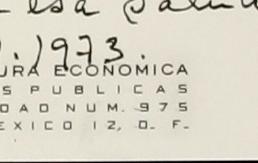 1973.
URA ECONOMICA
S PUBLICAS
DAD NUM. 975
EXICO 12, D. F.